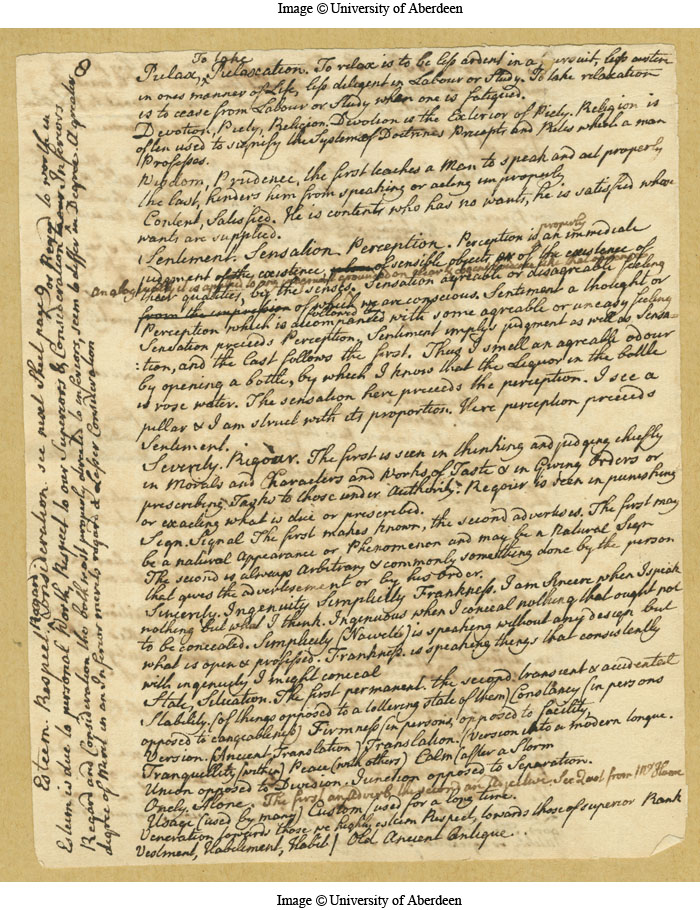 Image © University of Aberdeen
To take
Relax, Relaxation. To relax is to be less ardent in a pursuit, less austere
in ones manner of Life, less diligent in Labour or Study. To take relaxation
is to cease from Labour or Study when one is fatigued.
Devotion, Piety, Religion. Devotion is the Exterior of Piety. Religion is
often used to signify the System of Doctrines Precepts and Rites which a man
Professes.
Wisdom, Prudence, the first teaches a Man to speak and act properly
the last, hinders him from speaking or acting improperly
Content, Satisfied. He is contents who has no wants, he is satisfied whose
wants are supplied.
properly
Sentiment. Sensation. Perception. Perception is an immediate
judgment of the existence, of sensible objects, or of the existence of
Analogically it is applied to any judgment grounded on
their qualities, by the senses. Sensation agreable or disagreable feeling
from the impression of which we are conscious. Sentiment a thought or
followed by
Perception which is accompanied with some agreable or uneasy feeling
Sensation preceeds Perception, Sentiment implys judgment as well as Sensa-
:tion, and the last follows the first. Thus I smell an agreable odour
by opening a bottle, by which I know that the Liquor in the bottle
is rose water. The sensation here preceeds the perception. I see a
pillar & I am struck with its proportion. Here perception preceeds
Sentiment.
Severity. Rigour. The first is seen in thinking and judging chiefly
in Morals and Characters and Works of Taste & in Giving Orders or
prescribing Tasks to those under Authority. Regour is seen in punishing
or exacting what is due or prescribed.
Sign. Signal The first makes known, the second advertises. The first may
be a natural Appearance or Phenomenon and may be a Natural Sign
The second is always Arbitrary & commonly something done by the person
that gives the advertisement or by his order.
Sincerity. Ingenuity Simplicity Frankness. I am Sincere when I speak
nothing but what I think. Ingenuous when I conceal nothing that ought not
to be concealed. Simplicity (Naiveté) is speaking without any design but
what is open & professed. Frankness is speaking things that consistently
with ingenuity I might conceal
State, Situation. The first permanent. the second transient & accidental
Stability, (of things opposed to a tottering state of them) Constancy (in persons
opposed to changeableness) Firmness (in persons, opposed to facility,
Version. (Ancient Translation) Translation. (Version into a modern tongue.
Tranquillity (within) Peace (with others) Calm (after a Storm
Union opposed to Division, Junction opposed to Separation.
Onely, Alone The first an Adverb, the second an Adjective. See Quot from Mr Hume
Usage (used by many) Custom (used for a long time.
Veneration towards those we highly esteem Respect, towards those of superior Rank
Vestment, Habilement, Habit / Old Ancient Antique.
8
Regard
Esteem. Respect. Consideration see next sheet page
Esteem is due to personal Worth, Respect to our Superiors & Consideration or Regard to worth in our Inferiors
Regard and Consideration tho both most properly directed to inferiors, seem to differ in Degree. A greater
degree of Merit in an Inferior merits regard & Lesser Consideration
Image © University of Aberdeen